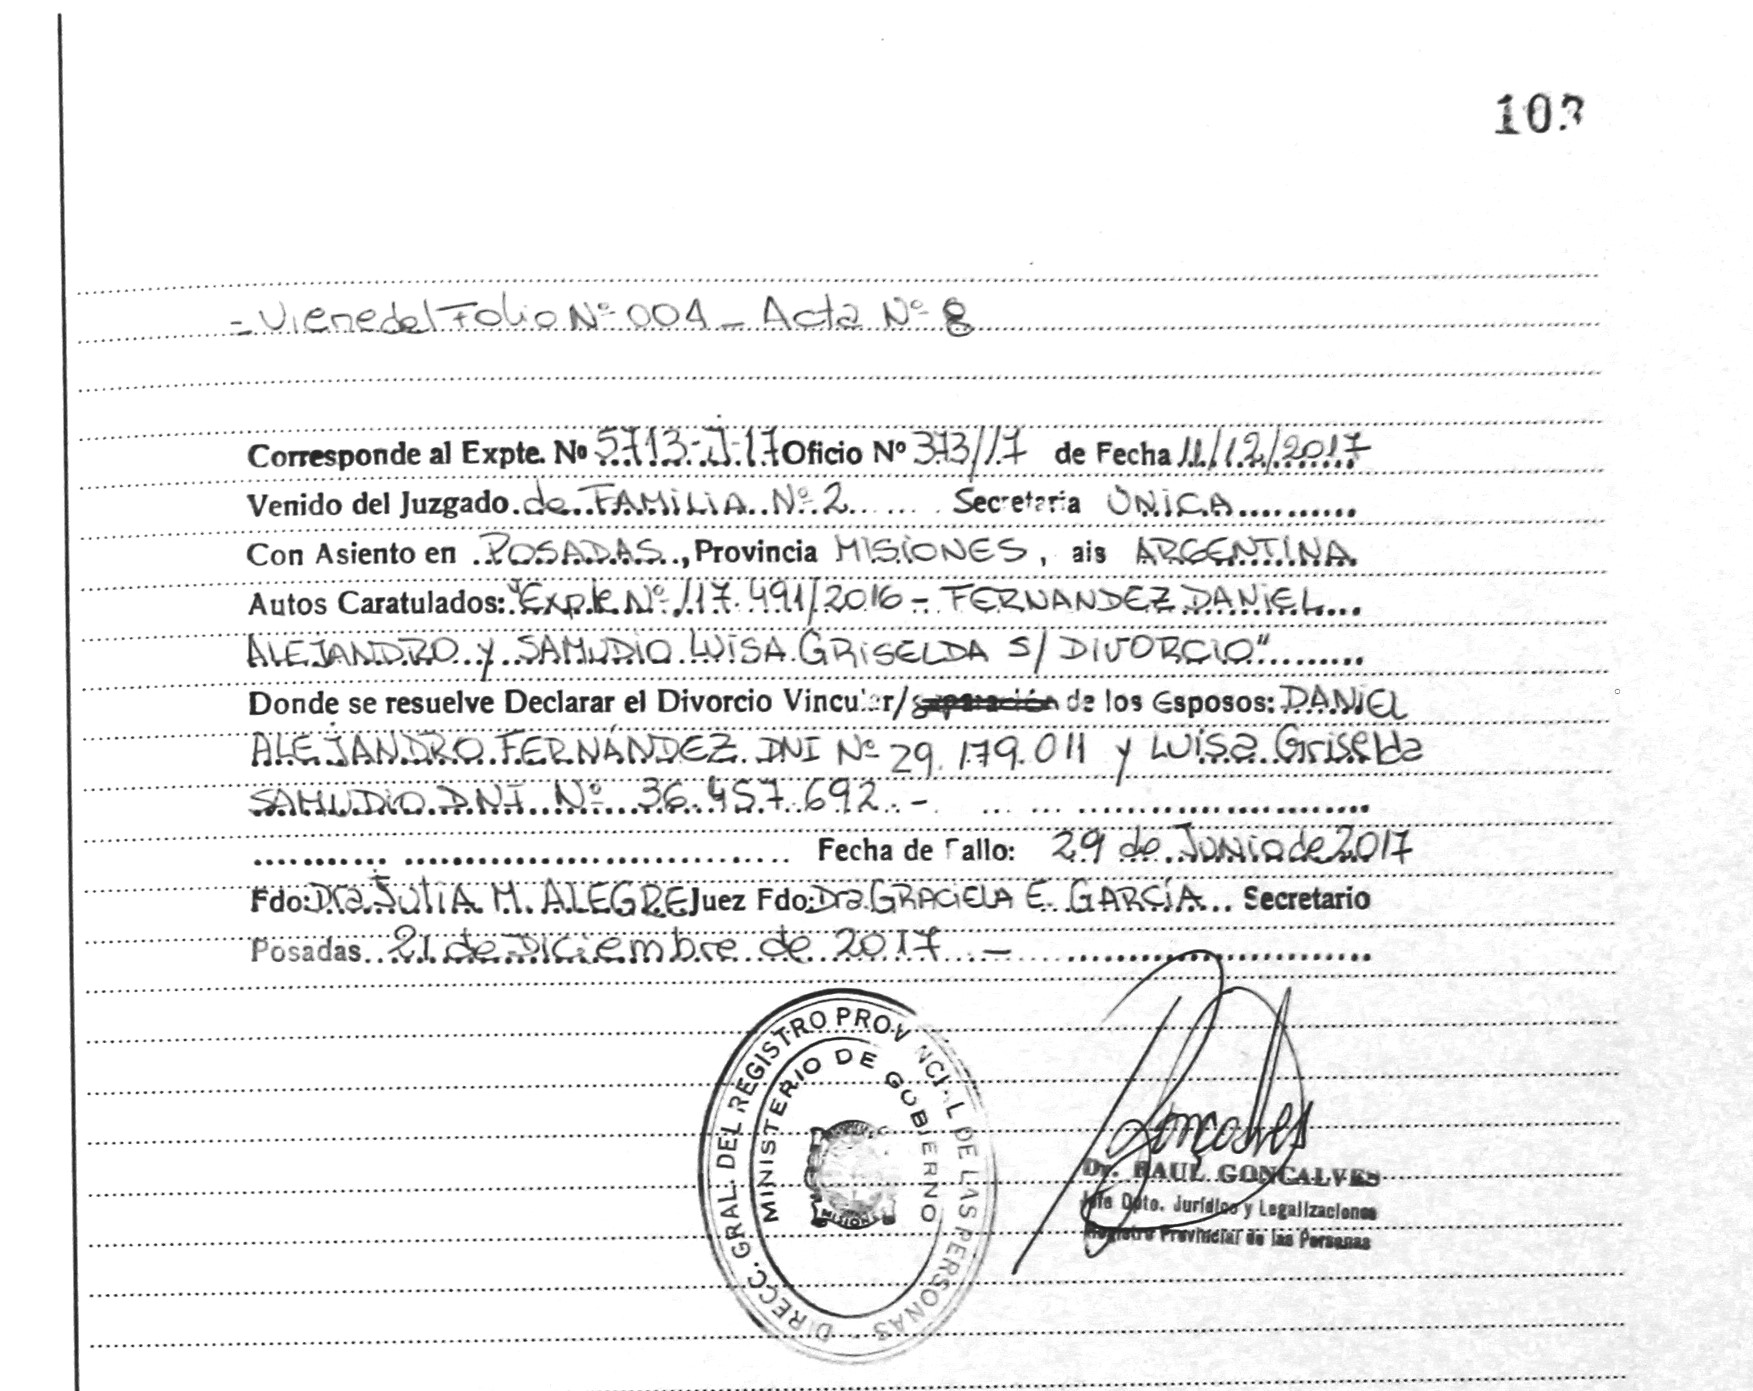 103
- Viene del Folio Nº 004 - Acta Nº 8
Corresponde al Expte. Nº 5713-J-17 Oficio Nº 373/17 de Fecha 11/12/2017
Venido del Juzgado de FAMILIA Nº 2 Secretaría ÚNICA
Con Asiento en POSADAS, Provincia MISIONES, ais ARGENTINA
Autos Caratulados: "Expte Nº 117.491/2016 - FERNANDEZ DANIEL
ALEJANDRO y SAMUDIO LUISA GRISELDA S/ DIVORCIO"
Donde se resuelve Declarar el Divorcio Vincular/separación de los Esposos: DANIEL
ALEJANDRO FERNÁNDEZ DNI Nº 29.179.011 y LUISA Griselda
SAMUDIO DNI Nº 36.457.692.-
Fecha de Fallo: 29 de Junio de 2017
Fdo: Dra. Julia M. ALEGRE Juez Fdo: Dra. GRACIELA E. GARCÍA Secretario
Posadas 21 de Diciembre de 2017 -
DIRECC. GRAL. DEL REGISTRO PROVINCIAL DE LAS PERSONAS
MINISTERIO DE GOBIERNO
MISIONES
Goncalves
Dr. RAUL GONCALVES
Jefe Dpto. Jurídico y Legalizaciones
Registro Provincial de las Personas